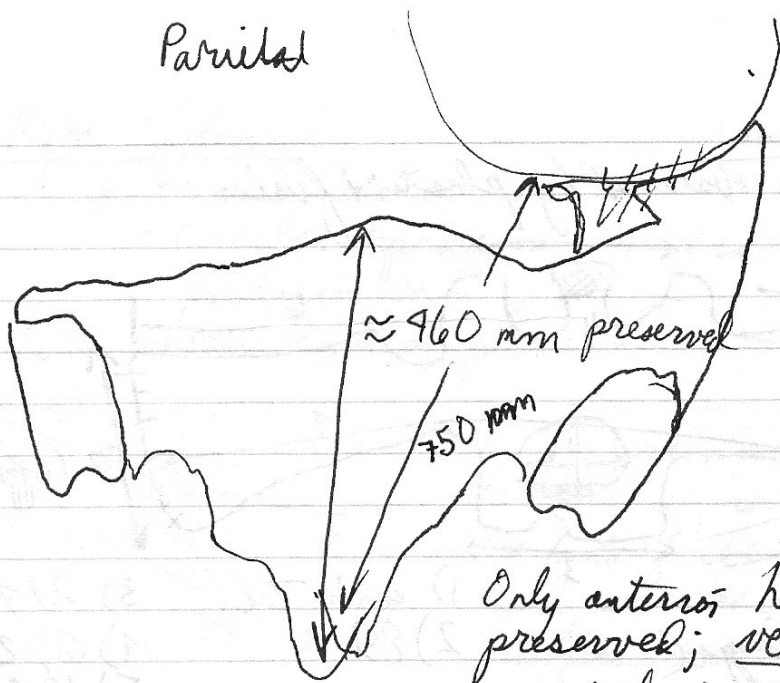 Parietal
≈ 460 mm preserved
750 mm
Only anterior
preserved;